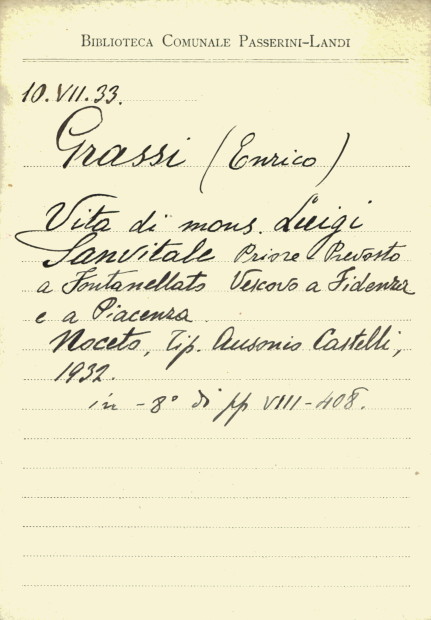 BIBLIOTECA COMUNALE PASSERINI-LANDI
10.VII.33.
Grassi (Enrico)
Vita di mons. Luigi
Sanvitale Priore Prevosto
a Fontanellato Vescovo a Fidenza
e a Piacenza.
Noceto, Tip. Ausonio Castelli,
1932.
in -8° di pp VIII-408.